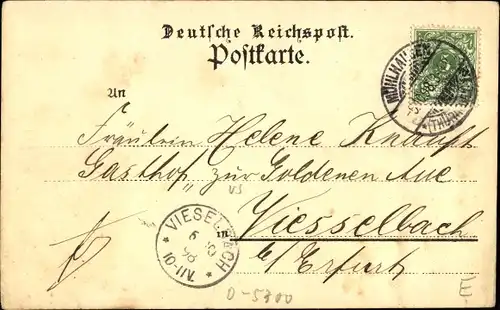 Deutsche Reichspost.
Postkarte.
MÜHLHAUSEN
(THÜR
An
Fräulein Helene Knauft
Gasthof "zur Goldenen Aue
V3
in Viesselbach
b/ Erfurt.
VIESELBACH
9
98
7/1-10V.
0-5800
E